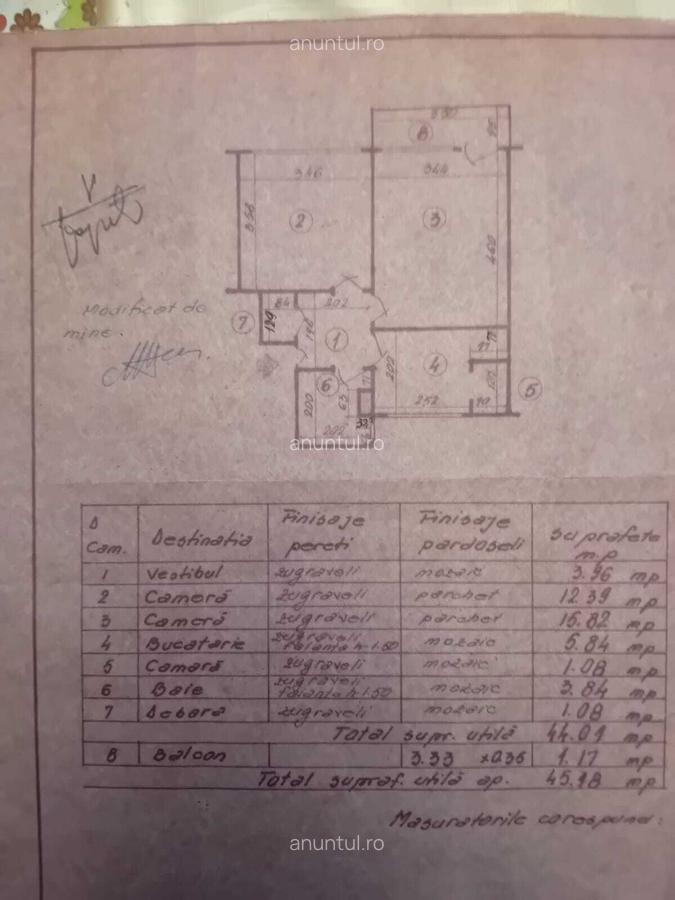 anuntul.ro
350
95
8
346
344
358
2
3
460
84
202
7
129
196
1
77
200
4
6
200
63
252
5
202
anuntul.ro
Modificat de
mine.
Cam. Destinatia Finisaje pereti Finisaje pardoseli Suprafete m.p
1 Vestibul zugraveli mozaic 3.96 mp
2 Cameră zugraveli parchet 12.39 mp
3 Cameră zugraveli parchet 15.82 mp
4 Bucatarie zugraveli faianta h 1.50 mozaic 5.84 mp
5 Camară zugraveli mozaic 1.08 mp
6 Baie zugraveli faianta h 1.50 mozaic 3.84 mp
7 Debara zugraveli mozaic 1.08 mp
Total supr. utilă 44.01 mp
8 Balcon 3.33 x0.35 1.17 mp
Total supraf. utilă ap. 45.18 mp
Masuratorile corespund:
anuntul.ro